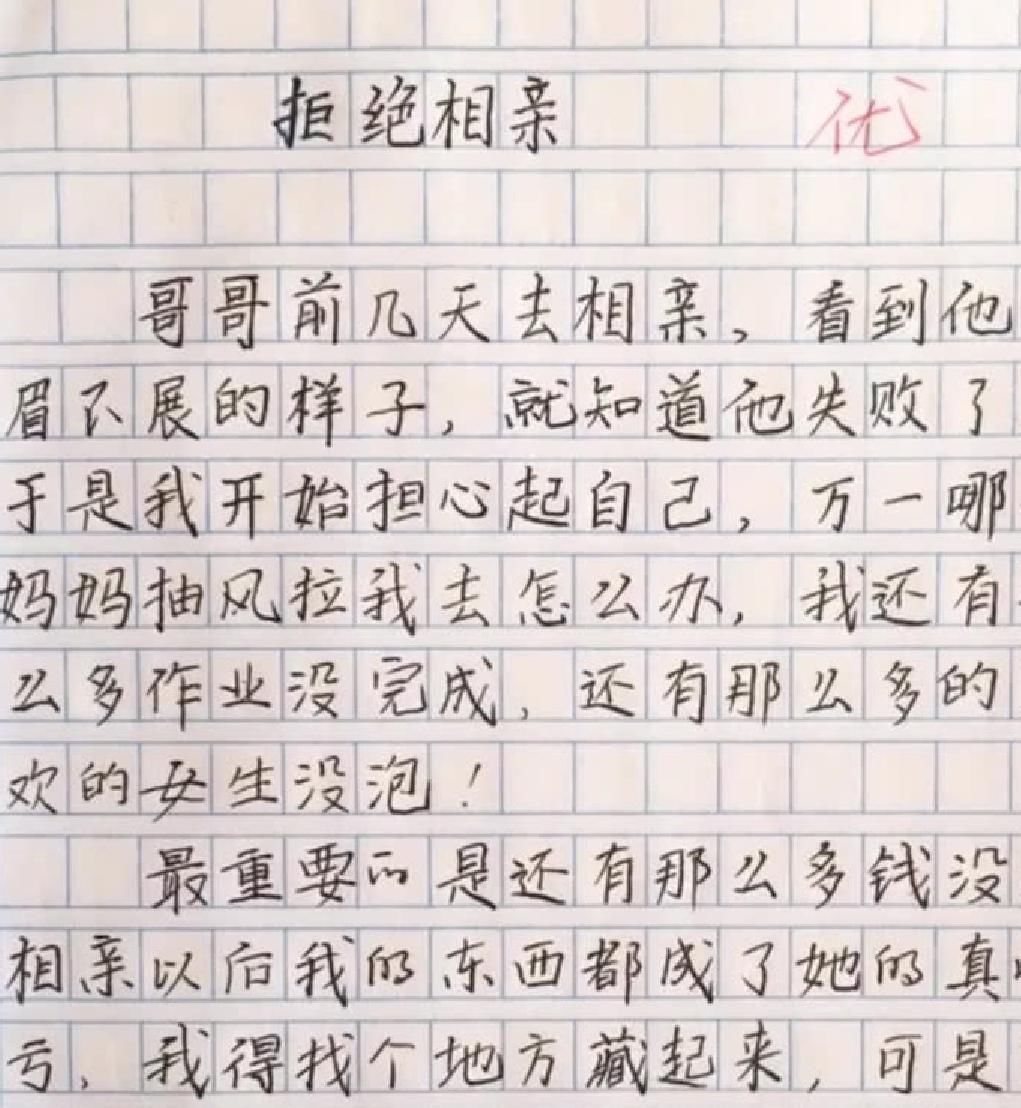 拒绝相亲 优
哥哥前几天去相亲，看到他
眉不展的样子，就知道他失败了
于是我开始担心起自己，万一哪
妈妈抽风拉我去怎么办，我还有
么多作业没完成，还有那么多的
欢的女生没泡！
最重要的是还有那么多钱没
相亲以后我的东西都成了她的真
亏，我得找个地方藏起来，可是